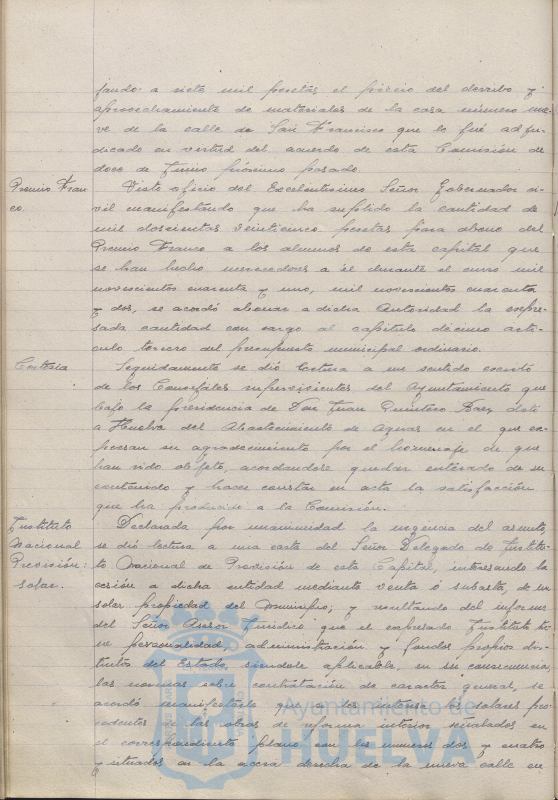 jando a siete mil pesetas el precio del derribo y
aprovechamiento de materiales de la casa número nue-
ve de la calle de San Francisco que le fué adju-
dicado en virtud del acuerdo de esta Comisión de
doce de Junio próximo pasado.
Premio Fran
co.
Visto oficio del Excelentísimo Señor Gobernador ci-
vil manifestando que ha suplido la cantidad de
mil doscientas veinticinco pesetas para abono del
Premio Franco a los alumnos de esta capital que
se han hecho merecedores a él durante el curso mil
novecientos cuarenta y uno, mil novecientos cuarenta
y dos, se acordó abonar a dicha Autoridad la expre-
sada cantidad con cargo al capítulo décimo artí-
culo tercero del presupuesto municipal ordinario.
Cortesía
Seguidamente se dió lectura a un sentido escrito
de los Concejales supervivientes del Ayuntamiento que
bajo la presidencia de Don Juan Quintero Baez dotó
a Huelva del Abastecimiento de Aguas en el que ex-
presan su agradecimiento por el homenaje de que
han sido objeto, acordandose quedar enterado de su
contenido y hacer constar en acta la satisfacción
que ha producido a la Comisión.
Instituto
Nacional
Previsión:
solar.
Declarada por unanimidad la urgencia del asunto,
se dió lectura a una carta del Señor Delegado de Institu-
to Nacional de Previsión de esta Capital, interesando la
cesión a dicha entidad mediante venta ó subasta, de un
solar propiedad del Municipio; y resultando del informe
del Señor Asesor Jurídico que el expresado Instituto tie-
ne personalidad, administración y fondos propios dis-
tintos del Estado, siendole aplicable, en su consecuencia,
las normas sobre contratación de caracter general, se
acordó manifestarle que los solares pro-
cedentes de las obras de reforma interior señalados en
el correspondiente plano con los numeros dos y cuatro
y situados en la acera derecha de la nueva calle en
Ayuntamiento de
HUELVA